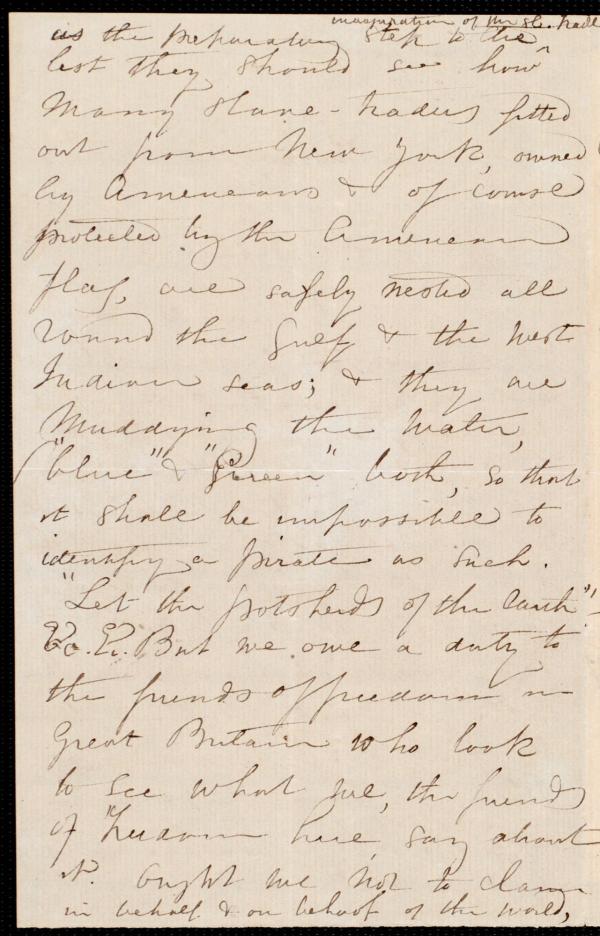 inauguration of the sla. trade
as the preparatory step to the
lest they should see how
many slave-traders fitted
out from New York, owned
by Americans & of course
protected by the American
flag, are safely nested all
round the Gulf & the West
Indian seas; & they are
muddying the water,
("blue" & "green" both, so that
it shall be impossible to
identify a pirate as such.
"Let the potsherds of the earth"—
&c. &c. But we owe a duty to
the friends of freedom in
Great Britain who look
to see what we, the friends
of freedom here, say about
it. Ought we not to claim
in behalf & on behoof of the world,